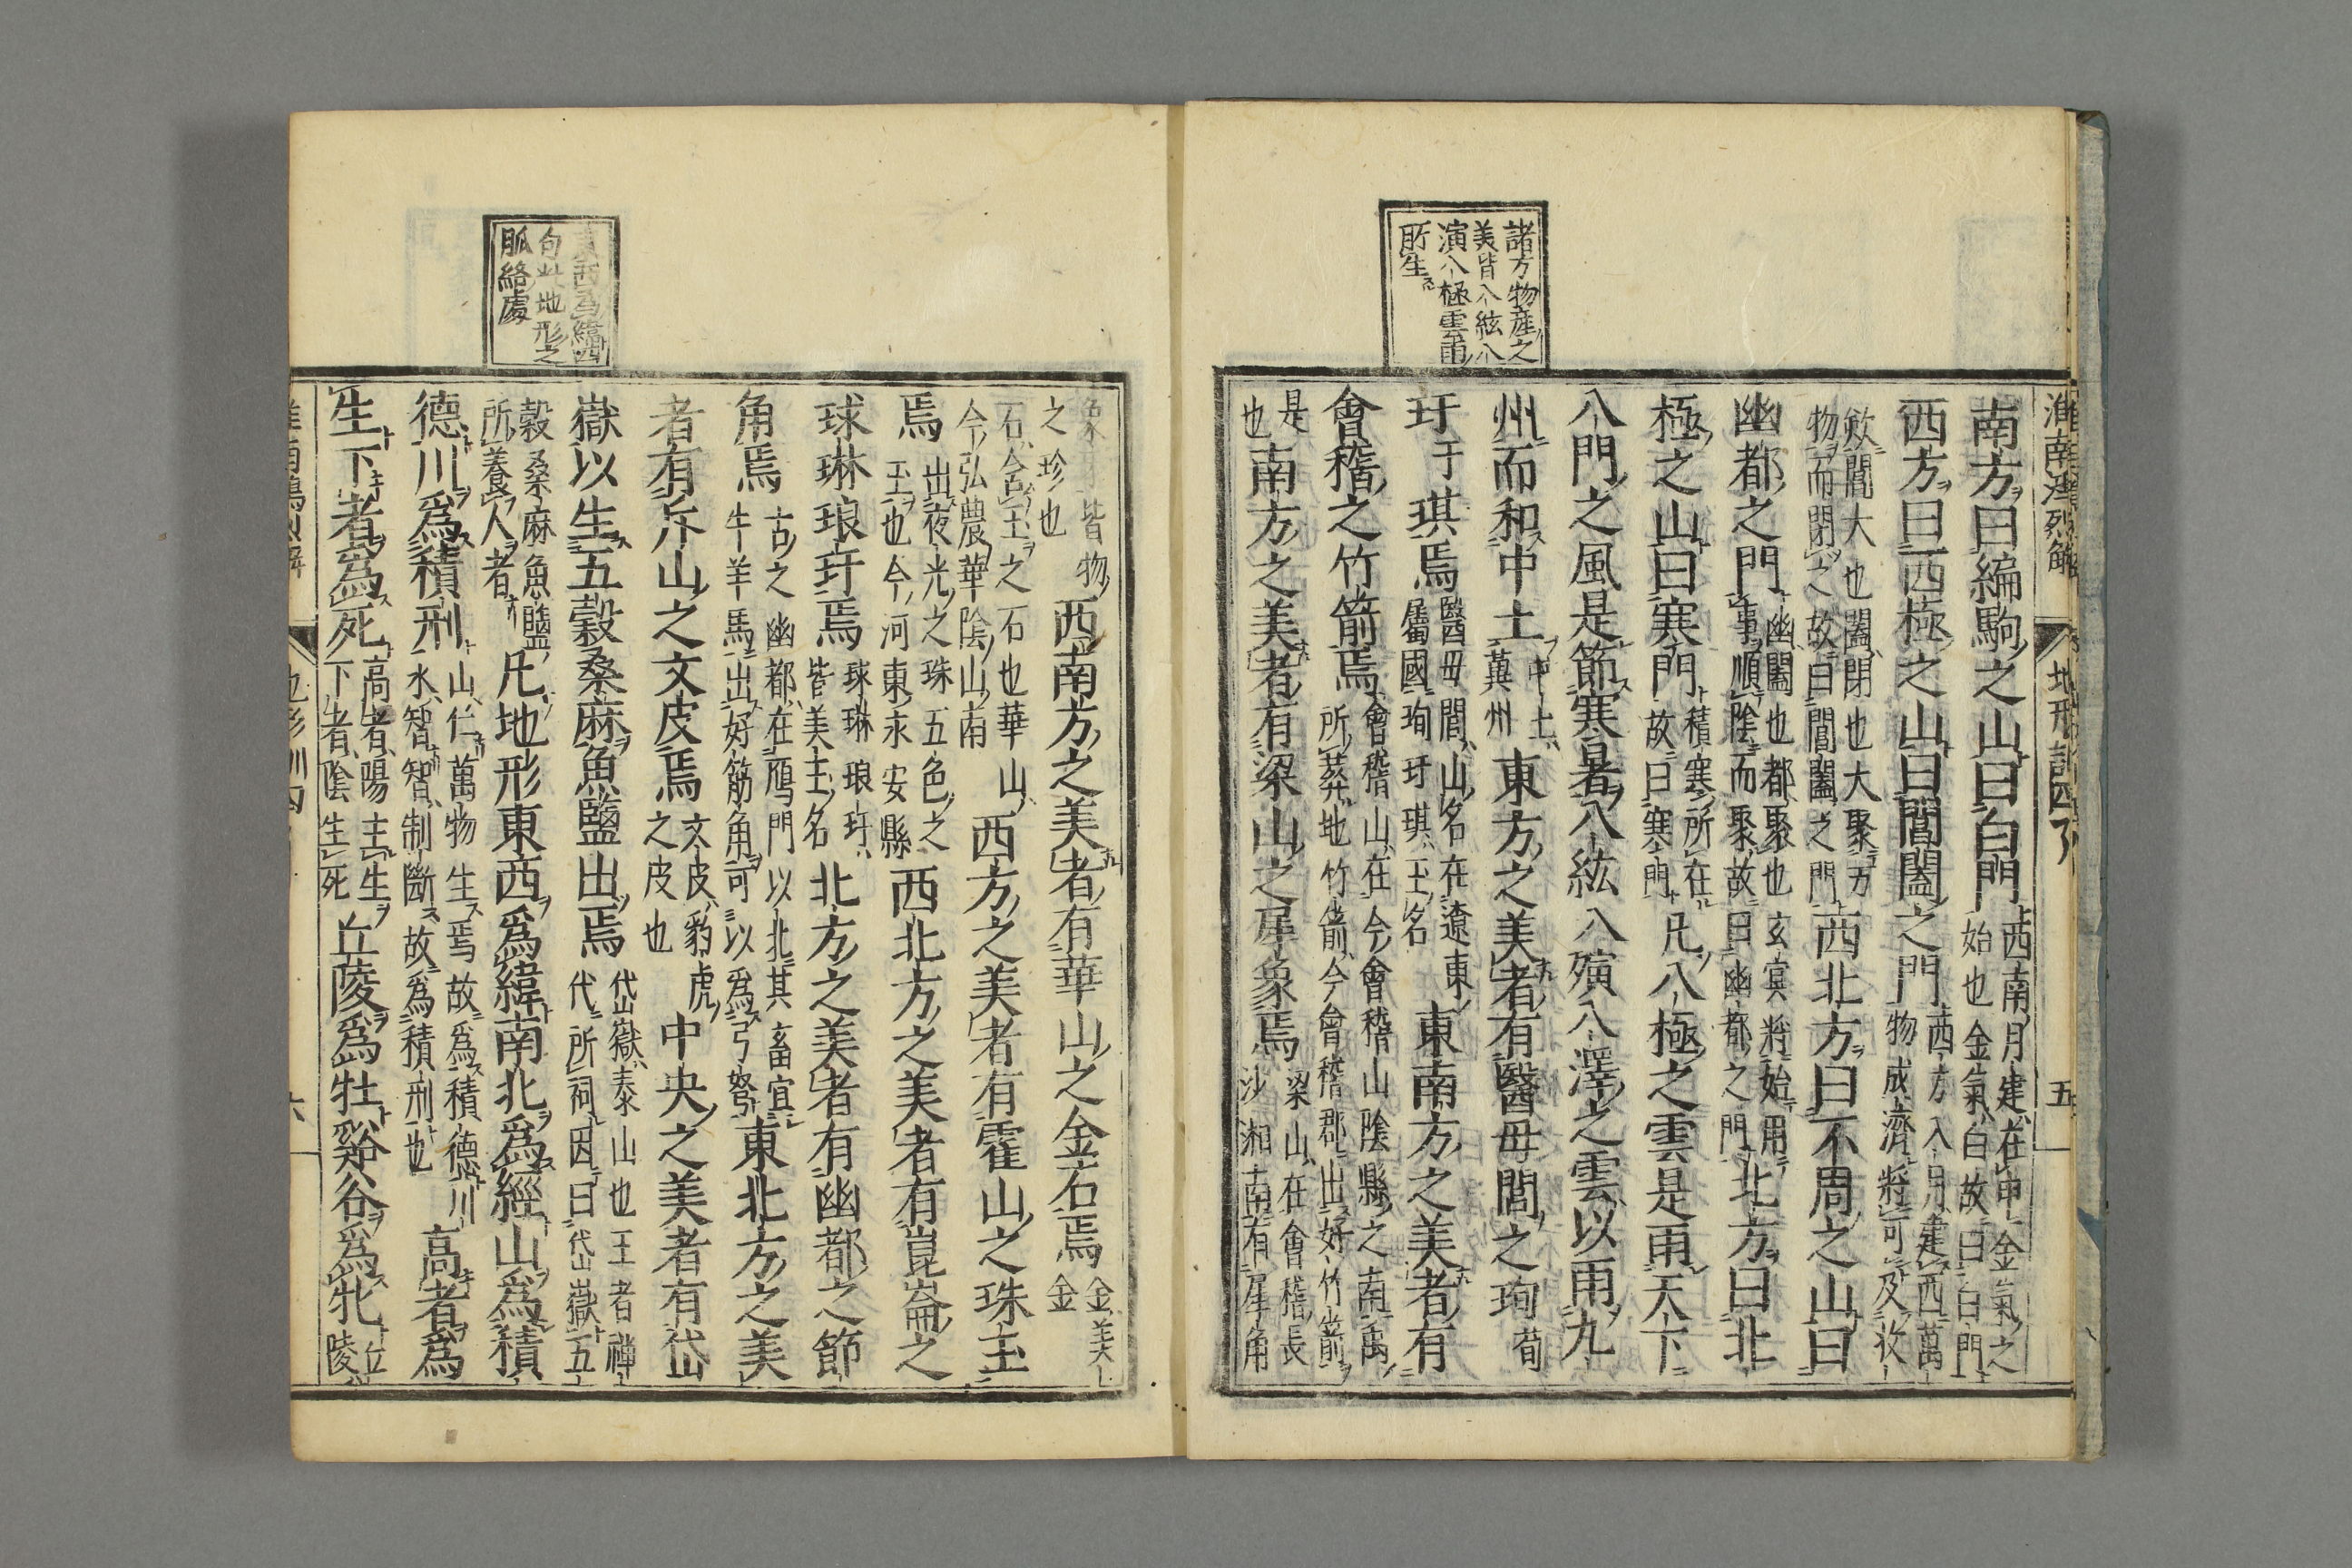 諸方物産之
美皆八紘八
演八極雲雨
所生
淮南鴻烈解
地形訓四
五
南方曰編駒之山曰白門西南月建在申金氣之
始也金氣白故曰白門
西方曰西極之山曰閶闔之門西方八月建酉萬
物成濟將可及收
斂閶大也闔閉也大聚万
物而閉之故曰閶闔之門西北方曰不周之山曰
幽都之門幽闇也都聚也玄冥將始用
事順陰而聚故曰幽都之門北方曰北
極之山曰寒門積寒所在
故曰寒門凡八極之雲是雨天下
八門之風是節寒暑八紘八殥八澤之雲以雨九
州而和中土中土
冀州東方之美者有醫毋閭之珣
玗琪焉醫毋閭山名在遼東
屬國珣玗琪玉名東南方之美者有
會稽之竹箭焉會稽山在今會稽山陰縣之南禹
所葬地竹箭今會稽郡出好竹箭
是
也南方之美者有梁山之犀象焉梁山在會稽長
沙湘南有犀角
東西爲緯四
句此地形之
脈絡處
皆物
之珍也西南方之美者有華山之金石焉金美
金
石含玉之石也華山
今弘農華陰山南西方之美者有霍山之珠玉
焉出夜光之珠五色之
玉也今河東永安縣西北方之美者有崑崙之
球琳琅玕焉球琳琅玕
皆美玉名北方之美者有幽都之節
角焉古之幽都在鴈門以北其畜宜
牛羊馬出好筋角可以爲弓弩東北方之美
者有斥山之文皮焉文皮豹虎
之皮也中央之美者有岱
嶽以生五穀桑麻魚鹽出焉岱嶽泰山也王者禪
代所祠因曰岱嶽五
穀桑麻魚鹽
所養人者凡地形東西爲緯南北爲經山爲積
德川爲積刑山仁萬物生焉故爲積德川
水智智制斷故爲積刑也高者爲
生下者爲死高者陽主生
下者陰主死丘陵爲牡谿谷爲牝丘
陵
六